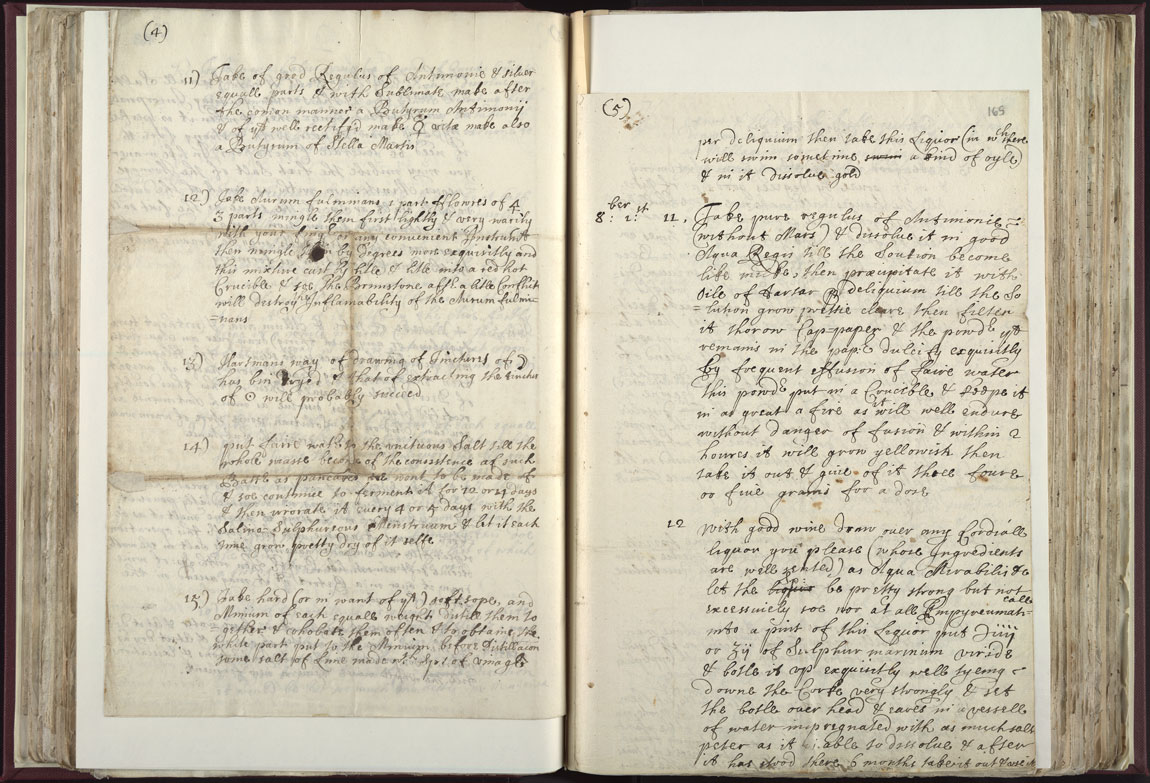 (4)
11) Take of good Regulus of Antimonie & silver
equall parts & with Sublimate make after
the comon manner a Butyrum Antimonij
& of yt well rectifyd make ☿ vitæ make also
a Butyrum of Stella Martis
12) Take Aurum fulminans 1 part flowres of
3 parts mingle them first lightly & very warily
with your any convenient Instrumt
then mingle by degrees more exquisitly and
this mixture cast by litle & litle into a red hot
Crucible & soe the Brimstone after a litle Conflict
will destroy Inflamability of the Aurum fulmi-
=nans
13) Hartmans way of drawing of Tinctures of ☽
has bin tryed & that of extracting the tincture
of ☉ will probably succeed
14) put faire water to the unituous Salt till the
whole masse become of the consistence of such
Paste as pancakes are wont to be made of
& soe continue to ferment it for 12 or 14 days
& then irrorate it every 4 or 5 days with the
Salino-Sulphureous Menstruum & let it each
time grow pretty dry of it selfe
15) Take hard (or in want of yt) soft sope, and
Minium of each equall weight Distill them to
gether & cohobate them often & to obtaine the
white part put to the Minium before Distillacion
some salt of Lime made wth Spt. of Vinagr
(5)
165
per deliquium then take this Liquor (in wch there
will swim sometime swim a kind of oyle)
& in it dissolve gold
8ber: 1st: 11, Take pure regulus of Antimonie
(without Mars) & dissolve it in good
Aqua Regis till the Soution become
like milke, then præcipitate it with
Oile of Tartar P deliquium till the So
=lution grow prettie cleare then filter
it thorow Cap-paper & the powdr yt
remains in the papr dulcify exquisitly
by frequent effusion of faire water
this powdr put in a Crucible & keepe it
in as great a fire as it will well endure
without danger of fusion & within 2
houres it will grow yellowish then
take it out & give of it three foure
or five grains for a dose
12 With good wine draw over any Cordiall
liquor you please (whose Ingredients
are well sented) as Aqua Mirabilis &
let the liquor be pretty strong but not
excessively soe nor at all Empyreumati=
call
into a pint of this Liquor put ʒiiij
or ʒij of Sulphur marinum viride
& botle it up exquisitly well tyeing
downe the Corke very strongly & set
the botle over head & eares in a vessell
of water impregnated with as much salt
peter as it is able to dissolve & after
it has stood there 6 months take it out & use it